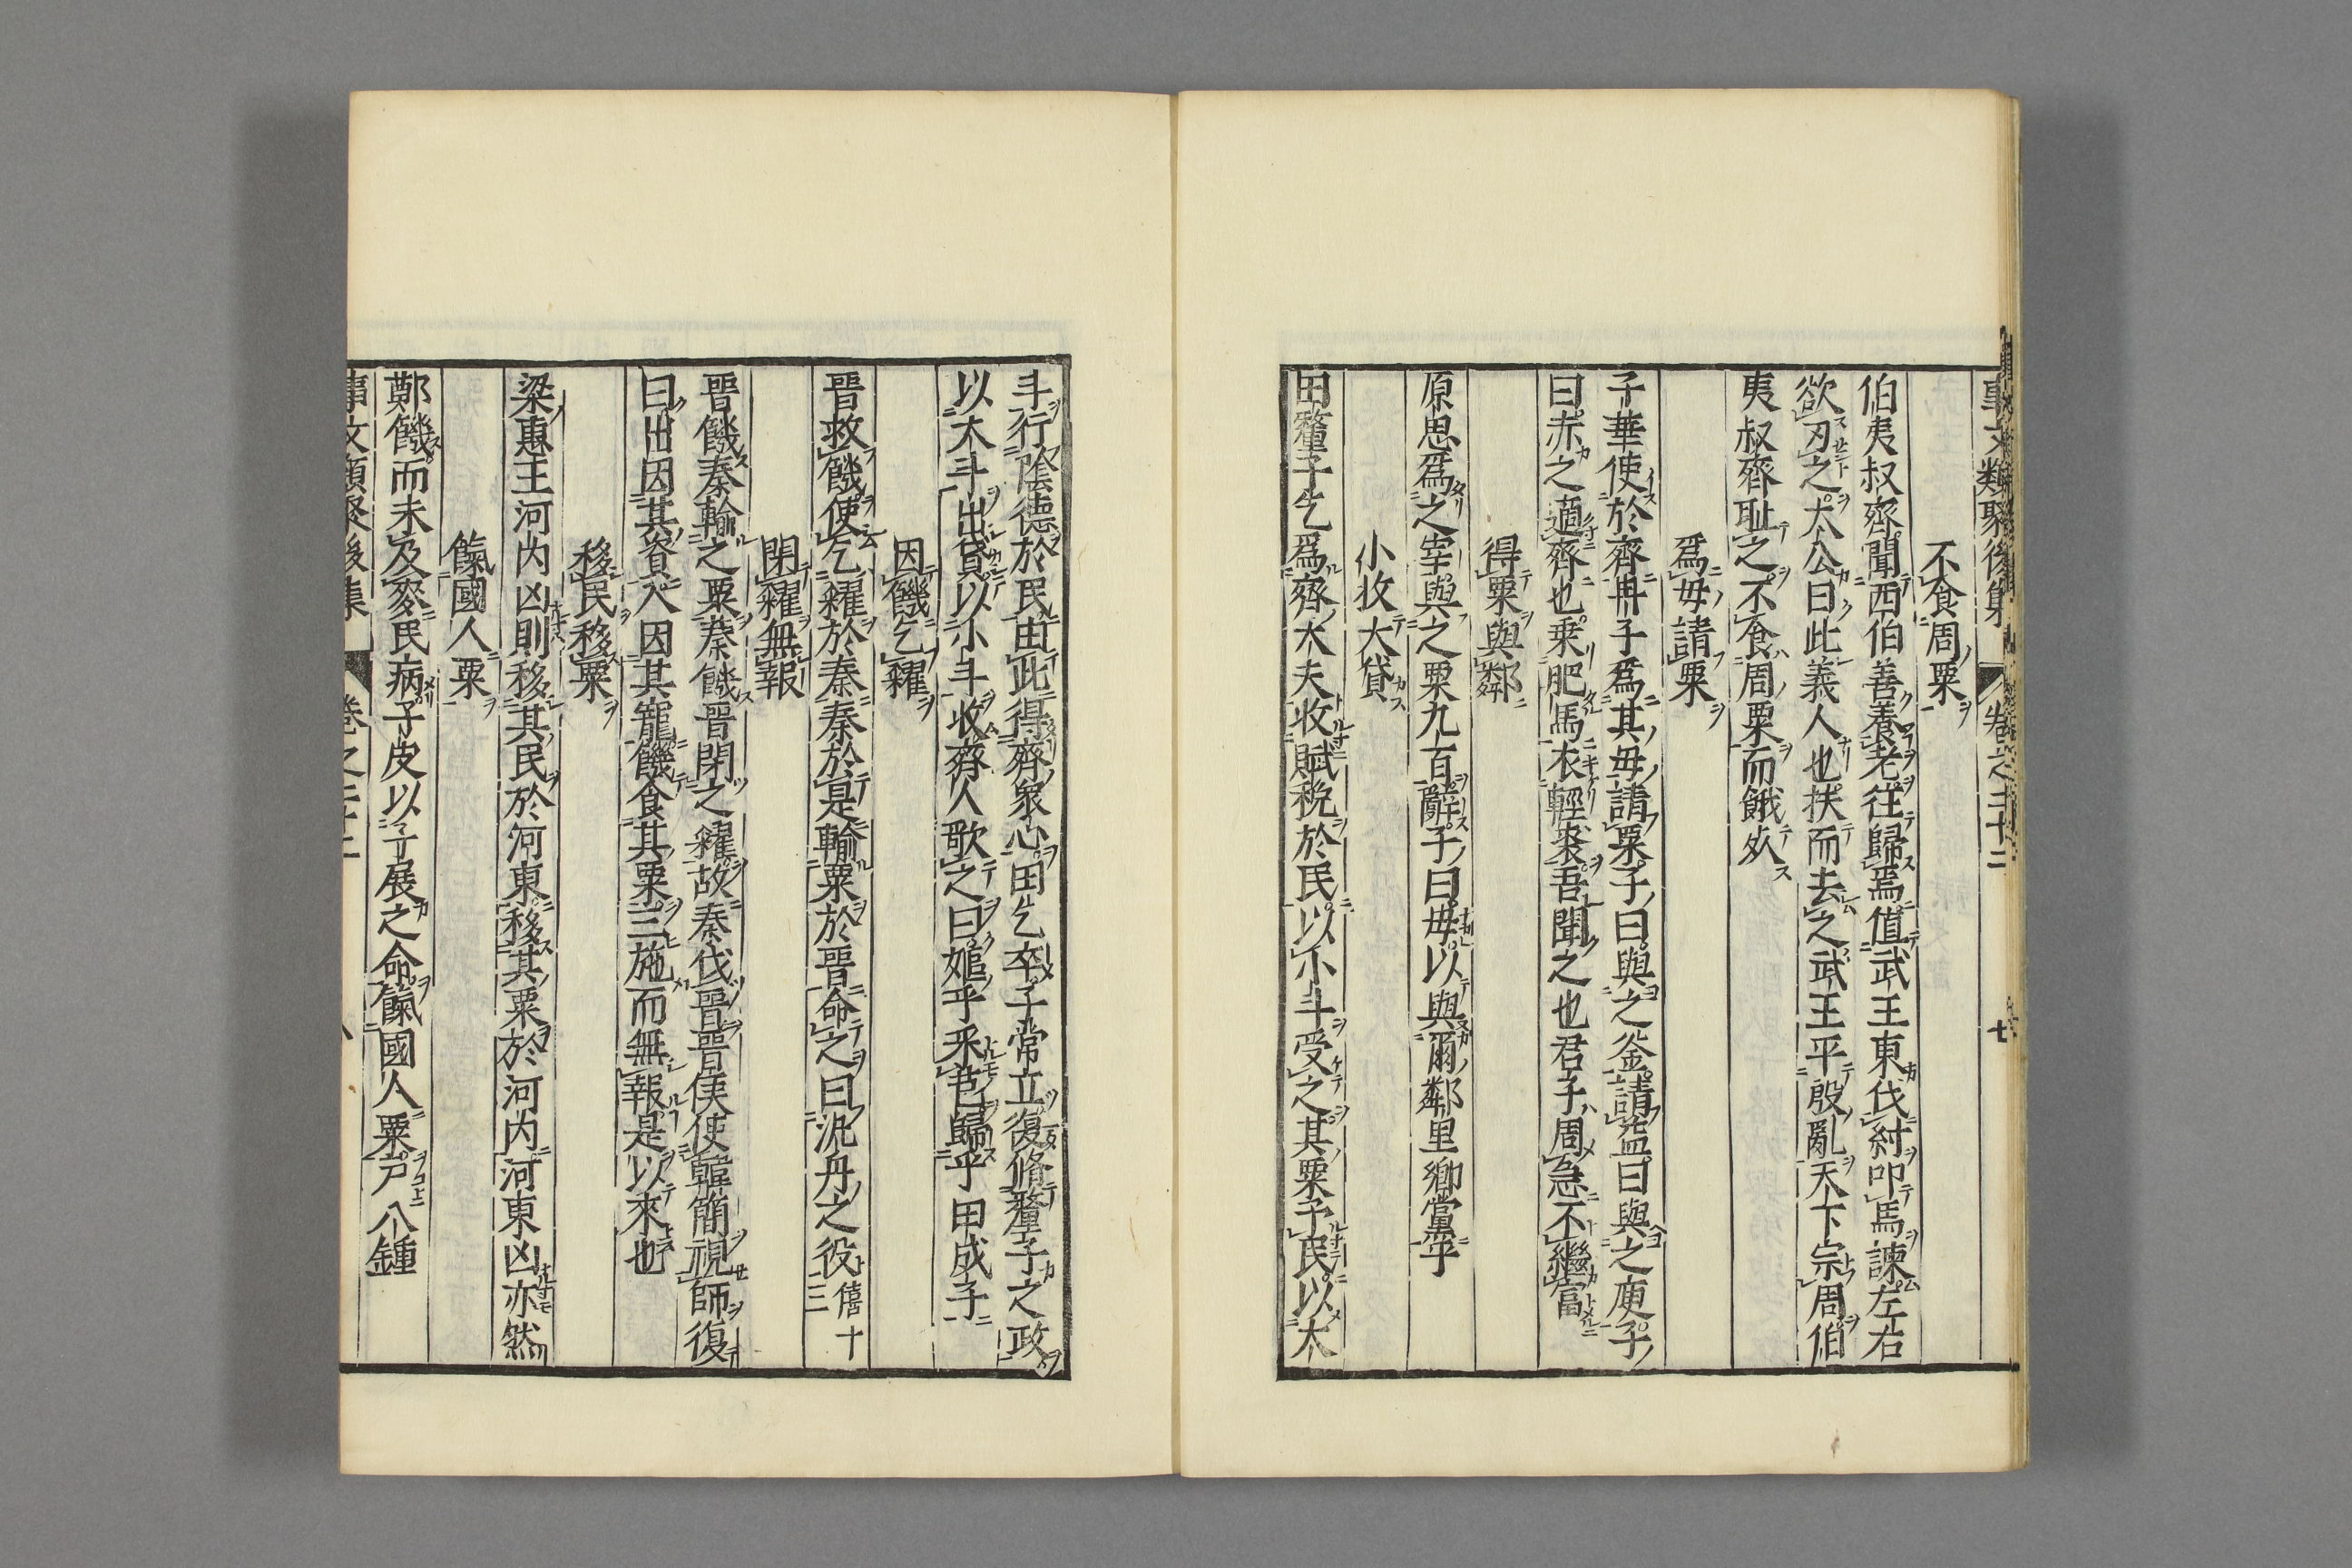 事文類聚後集 卷之二十二 七
不食周粟
伯夷叔齊聞西伯善養老徃歸焉值武王東伐紂叩馬諫左右
欲刃之太公曰此義人也扶而去之武王平殷亂天下宗周伯
夷叔齊耻之不食周粟而餓死
爲毋請粟
子華使於齊冉子爲其毋請粟子曰與之釜請益曰與之庾子
曰赤之適齊也乗肥馬衣輕裘吾聞之也君子周急不繼富
得粟與鄰
原思爲之宰與之粟九百辭子曰毋以與爾鄰里鄉黨乎
小收大貸
田釐子乞爲齊大夫收賦稅於民以小斗受之其粟予民以大
斗行陰德於民由此得齊衆心田乞卒子常立復脩釐子之政
以大斗出貸以小斗收齊人歌之曰嫗乎采芑歸乎田成子
因饑乞糴
晉救饑使乞糴於秦秦於是輸粟於晉命之曰汎舟之役 僖十三
閉糴無報
晉饑秦輸之粟秦饑晉閉之糴故秦伐晉晉侯使韓簡視師復
曰出因其資入因其寵饑食其粟三施而無報是以來也
移民移粟
梁惠王河内凶則移其民於河東移其粟於河内河東凶亦然
餼國人粟
鄭饑而未及麥民病子皮以子展之命餼國人粟戸八鍾
事文類聚後集 卷之二十二 八